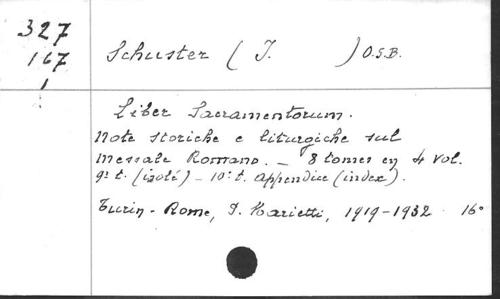 327
167
1
Schuster ( I. ) O.S.B.
Liber Sacramentorum.
Note storiche e liturgiche sul
Messale Romano. _ 8 tomes en 4 vol.
9e t. (isolé) _ 10e t. appendice (index).
Turin - Rome, P. Marietti, 1919-1932 16°